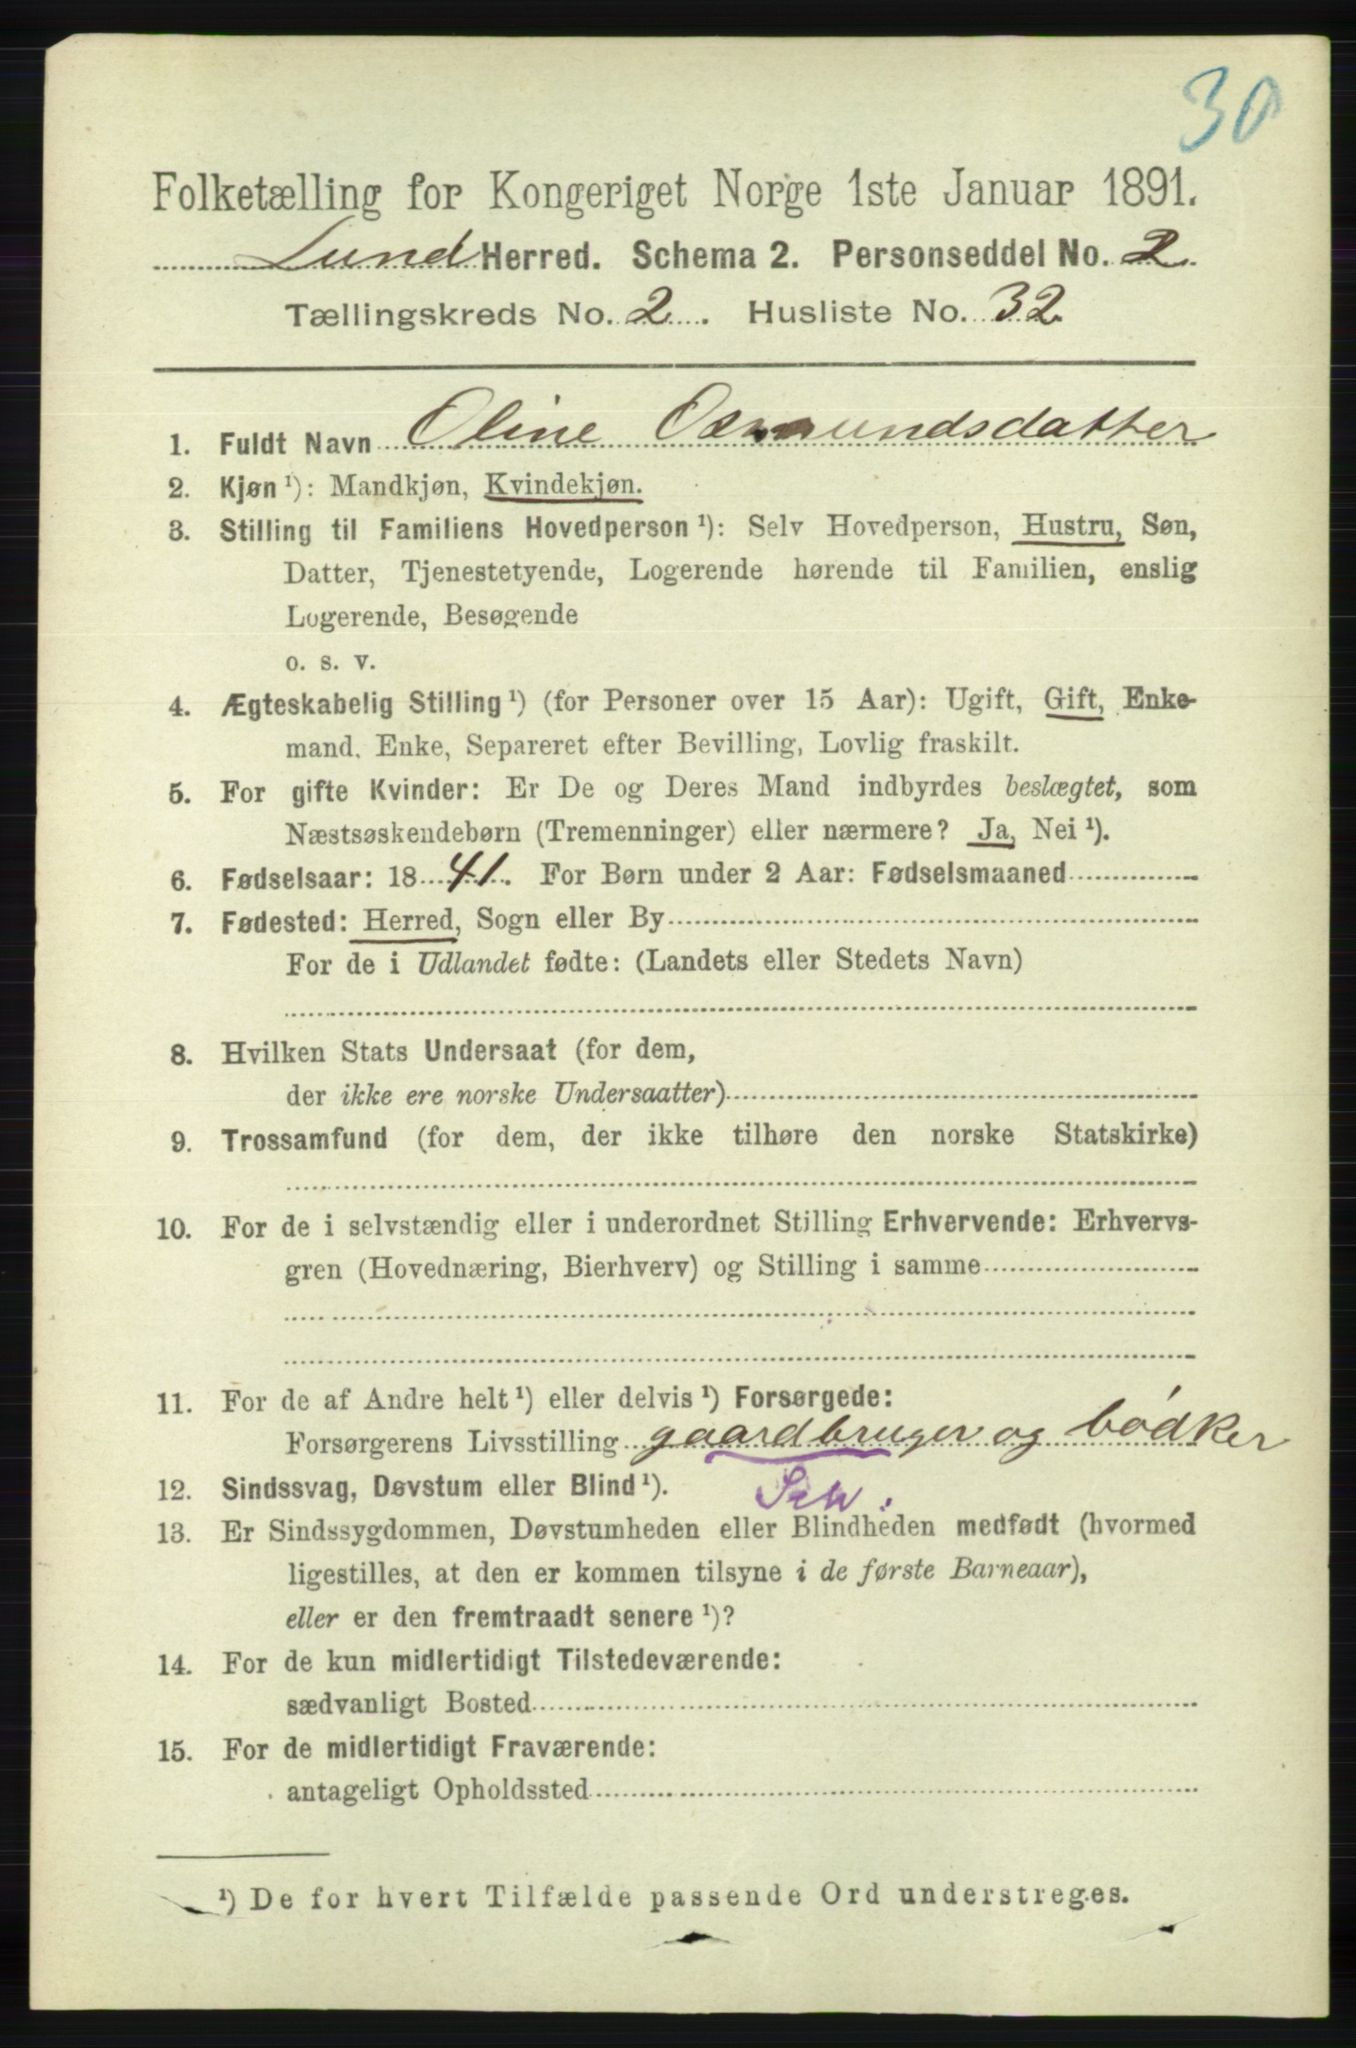 30
Folketælling for Kongeriget Norge 1ste Januar 1891.
Lund Herred. Schema 2. Personseddel No. 2.
Tællingskreds No. 2. Husliste No. 32.
1. Fuldt Navn Oline Osmundsdatter
2. Kjøn ¹): Mandkjøn, Kvindekjøn.
3. Stilling til Familiens Hovedperson ¹): Selv Hovedperson, Hustru, Søn,
Datter, Tjenestetyende, Logerende hørende til Familien, enslig
Logerende, Besøgende
o. s. v.
4. Ægteskabelig Stilling ¹) (for Personer over 15 Aar): Ugift, Gift, Enke-
mand, Enke, Separeret efter Bevilling, Lovlig fraskilt.
5. For gifte Kvinder: Er De og Deres Mand indbyrdes beslægtet, som
Næstsøskendebørn (Tremenninger) eller nærmere? Ja, Nei ¹).
6. Fødselsaar: 18 41. For Børn under 2 Aar: Fødselsmaaned
7. Fødested: Herred, Sogn eller By
For de i Udlandet fødte: (Landets eller Stedets Navn)
8. Hvilken Stats Undersaat (for dem,
der ikke ere norske Undersaatter)
9. Trossamfund (for dem, der ikke tilhøre den norske Statskirke)
10. For de i selvstændig eller i underordnet Stilling Erhvervende: Erhvervs-
gren (Hovednæring, Bierhverv) og Stilling i samme
11. For de af Andre helt ¹) eller delvis ¹) Forsørgede:
Forsørgerens Livsstilling gaardbruger og bødker
12. Sindssvag, Døvstum eller Blind ¹).
13. Er Sindssygdommen, Døvstumheden eller Blindheden medfødt (hvormed
ligestilles, at den er kommen tilsyne i de første Barneaar),
eller er den fremtraadt senere ¹)?
14. For de kun midlertidigt Tilstedeværende:
sædvanligt Bosted
15. For de midlertidigt Fraværende:
antageligt Opholdssted
¹) De for hvert Tilfælde passende Ord understreges.